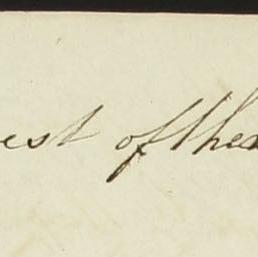 est of the